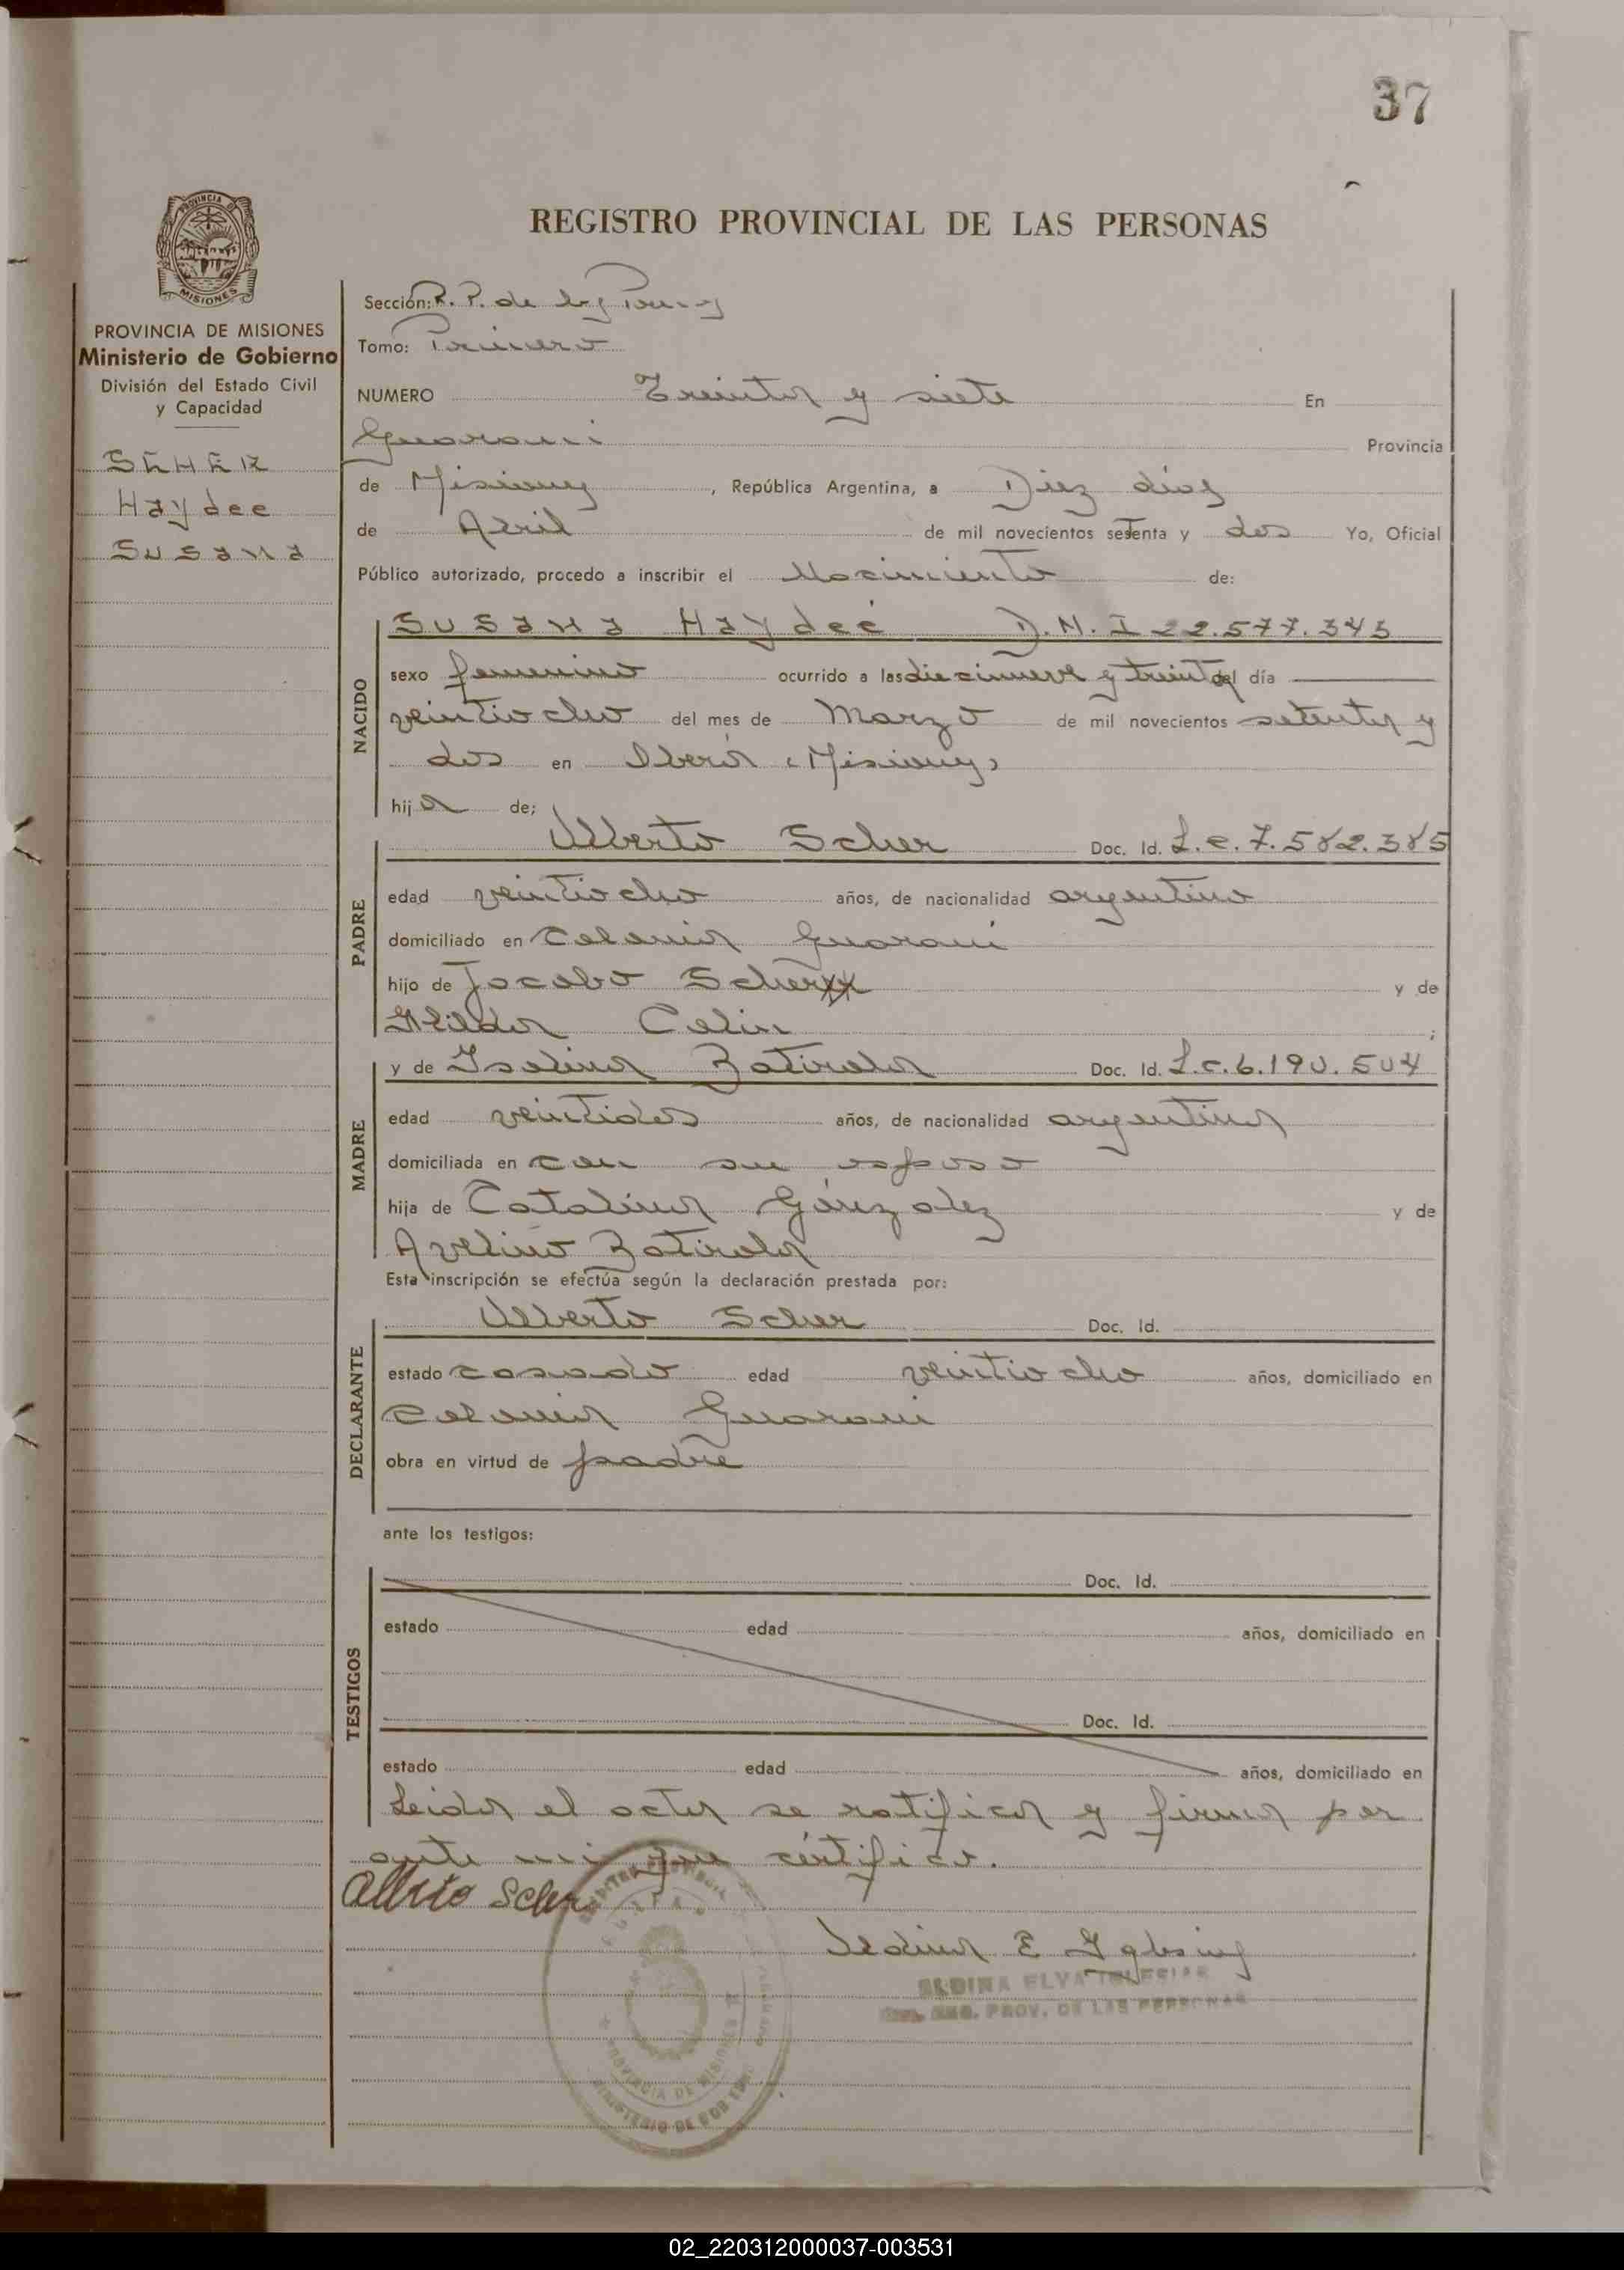 37
REGISTRO PROVINCIAL DE LAS PERSONAS
PROVINCIA DE MISIONES
Ministerio de Gobierno
División del Estado Civil
y Capacidad
SCHER
Haydee
Susana
Sección: R. P. de las
Tomo: Primero
NUMERO Treinta y siete En
Guarani Provincia
de Misiones, República Argentina, a Diez días
de Abril de mil novecientos setenta y dos Yo, Oficial
Público autorizado, procedo a inscribir el Nacimiento de:
NACIDO
Susana Haydeé D.N.I 22.577.343
sexo femenino ocurrido a las diecinueve y treinta del día
veintiocho del mes de Marzo de mil novecientos setenta y
dos en Oberá (Misiones)
hija de;
PADRE
Alberto Scher Doc. Id. L.e. 7.582.385
edad veintiocho años, de nacionalidad argentino
domiciliado en Colonia Guarani
hijo de Jacobo Scher y de
Hilda Celin ;
MADRE
y de Isolina Batirola Doc. Id. L.c. 6.190.504
edad veintidos años, de nacionalidad argentina
domiciliada en con su esposo
hija de Catalina Gónzalez y de
Avelino Batirola
Esta inscripción se efectúa según la declaración prestada por:
DECLARANTE
Alberto Scher Doc. Id.
estado casado edad veintiocho años, domiciliado en
Colonia Guarani
obra en virtud de padre
ante los testigos:
TESTIGOS
Doc. Id.
estado edad años, domiciliado en
Doc. Id.
estado edad años, domiciliado en
Leida el acta se ratifica y firma por
ante mi que certifico.
Alberto Scher
E Iglesias
ELVA IGLESIAS
REG. PROV. DE LAS PERSONAS
PROVINCIA DE MISIONES
MINISTERIO DE GOBIERNO
02_220312000037-003531